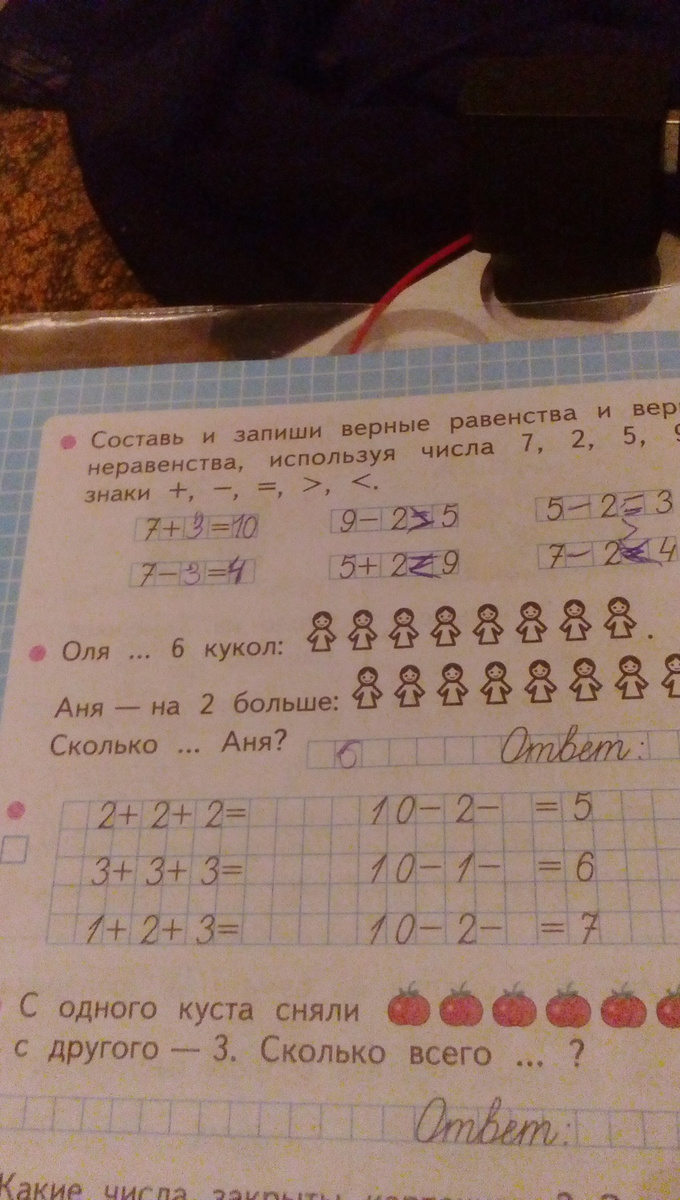 Составь и запиши верные равенства и вер
неравенства, используя числа 7, 2, 5, 9
знаки +, −, =, >, <.
7+3=10 9− 2>5 5− 2=3
7−3=4 5+ 2<9 7− 2 4
Оля ... 6 кукол: .
Аня — на 2 больше:
Сколько ... Аня? 6 Ответ:
2+ 2+ 2= 10− 2− = 5
3+ 3+ 3= 10− 1− = 6
1+ 2+ 3= 10− 2− = 7
С одного куста сняли
с другого — 3. Сколько всего ... ?
Ответ:
Какие числа закрыты